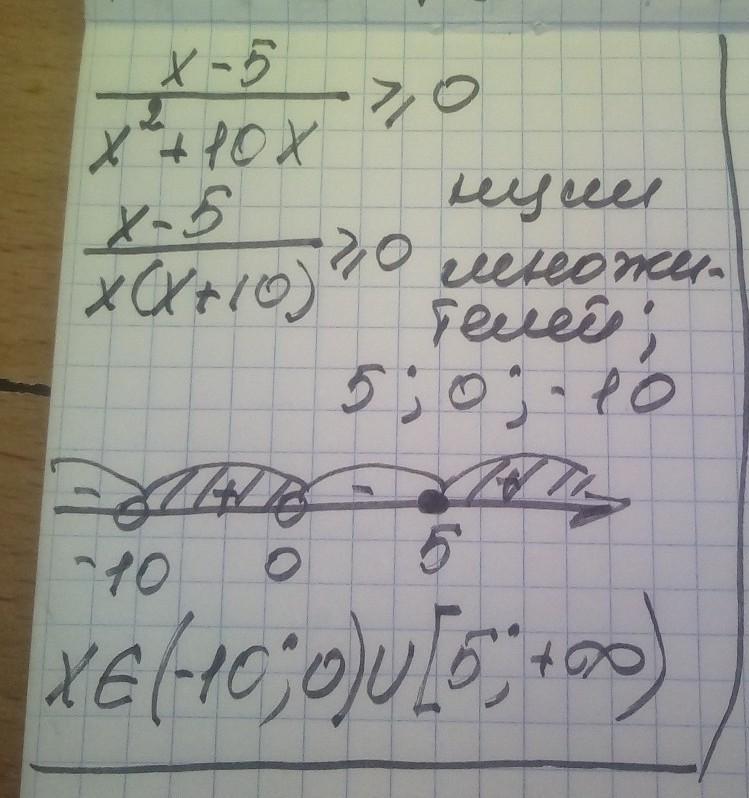 x-5
x²+10x ≥ 0
x-5
x(x+10) ≥ 0
нули
множи-
телей;
5; 0; -10
- + - +
-10 0 5
x∈(-10; 0)∪[5; +∞)